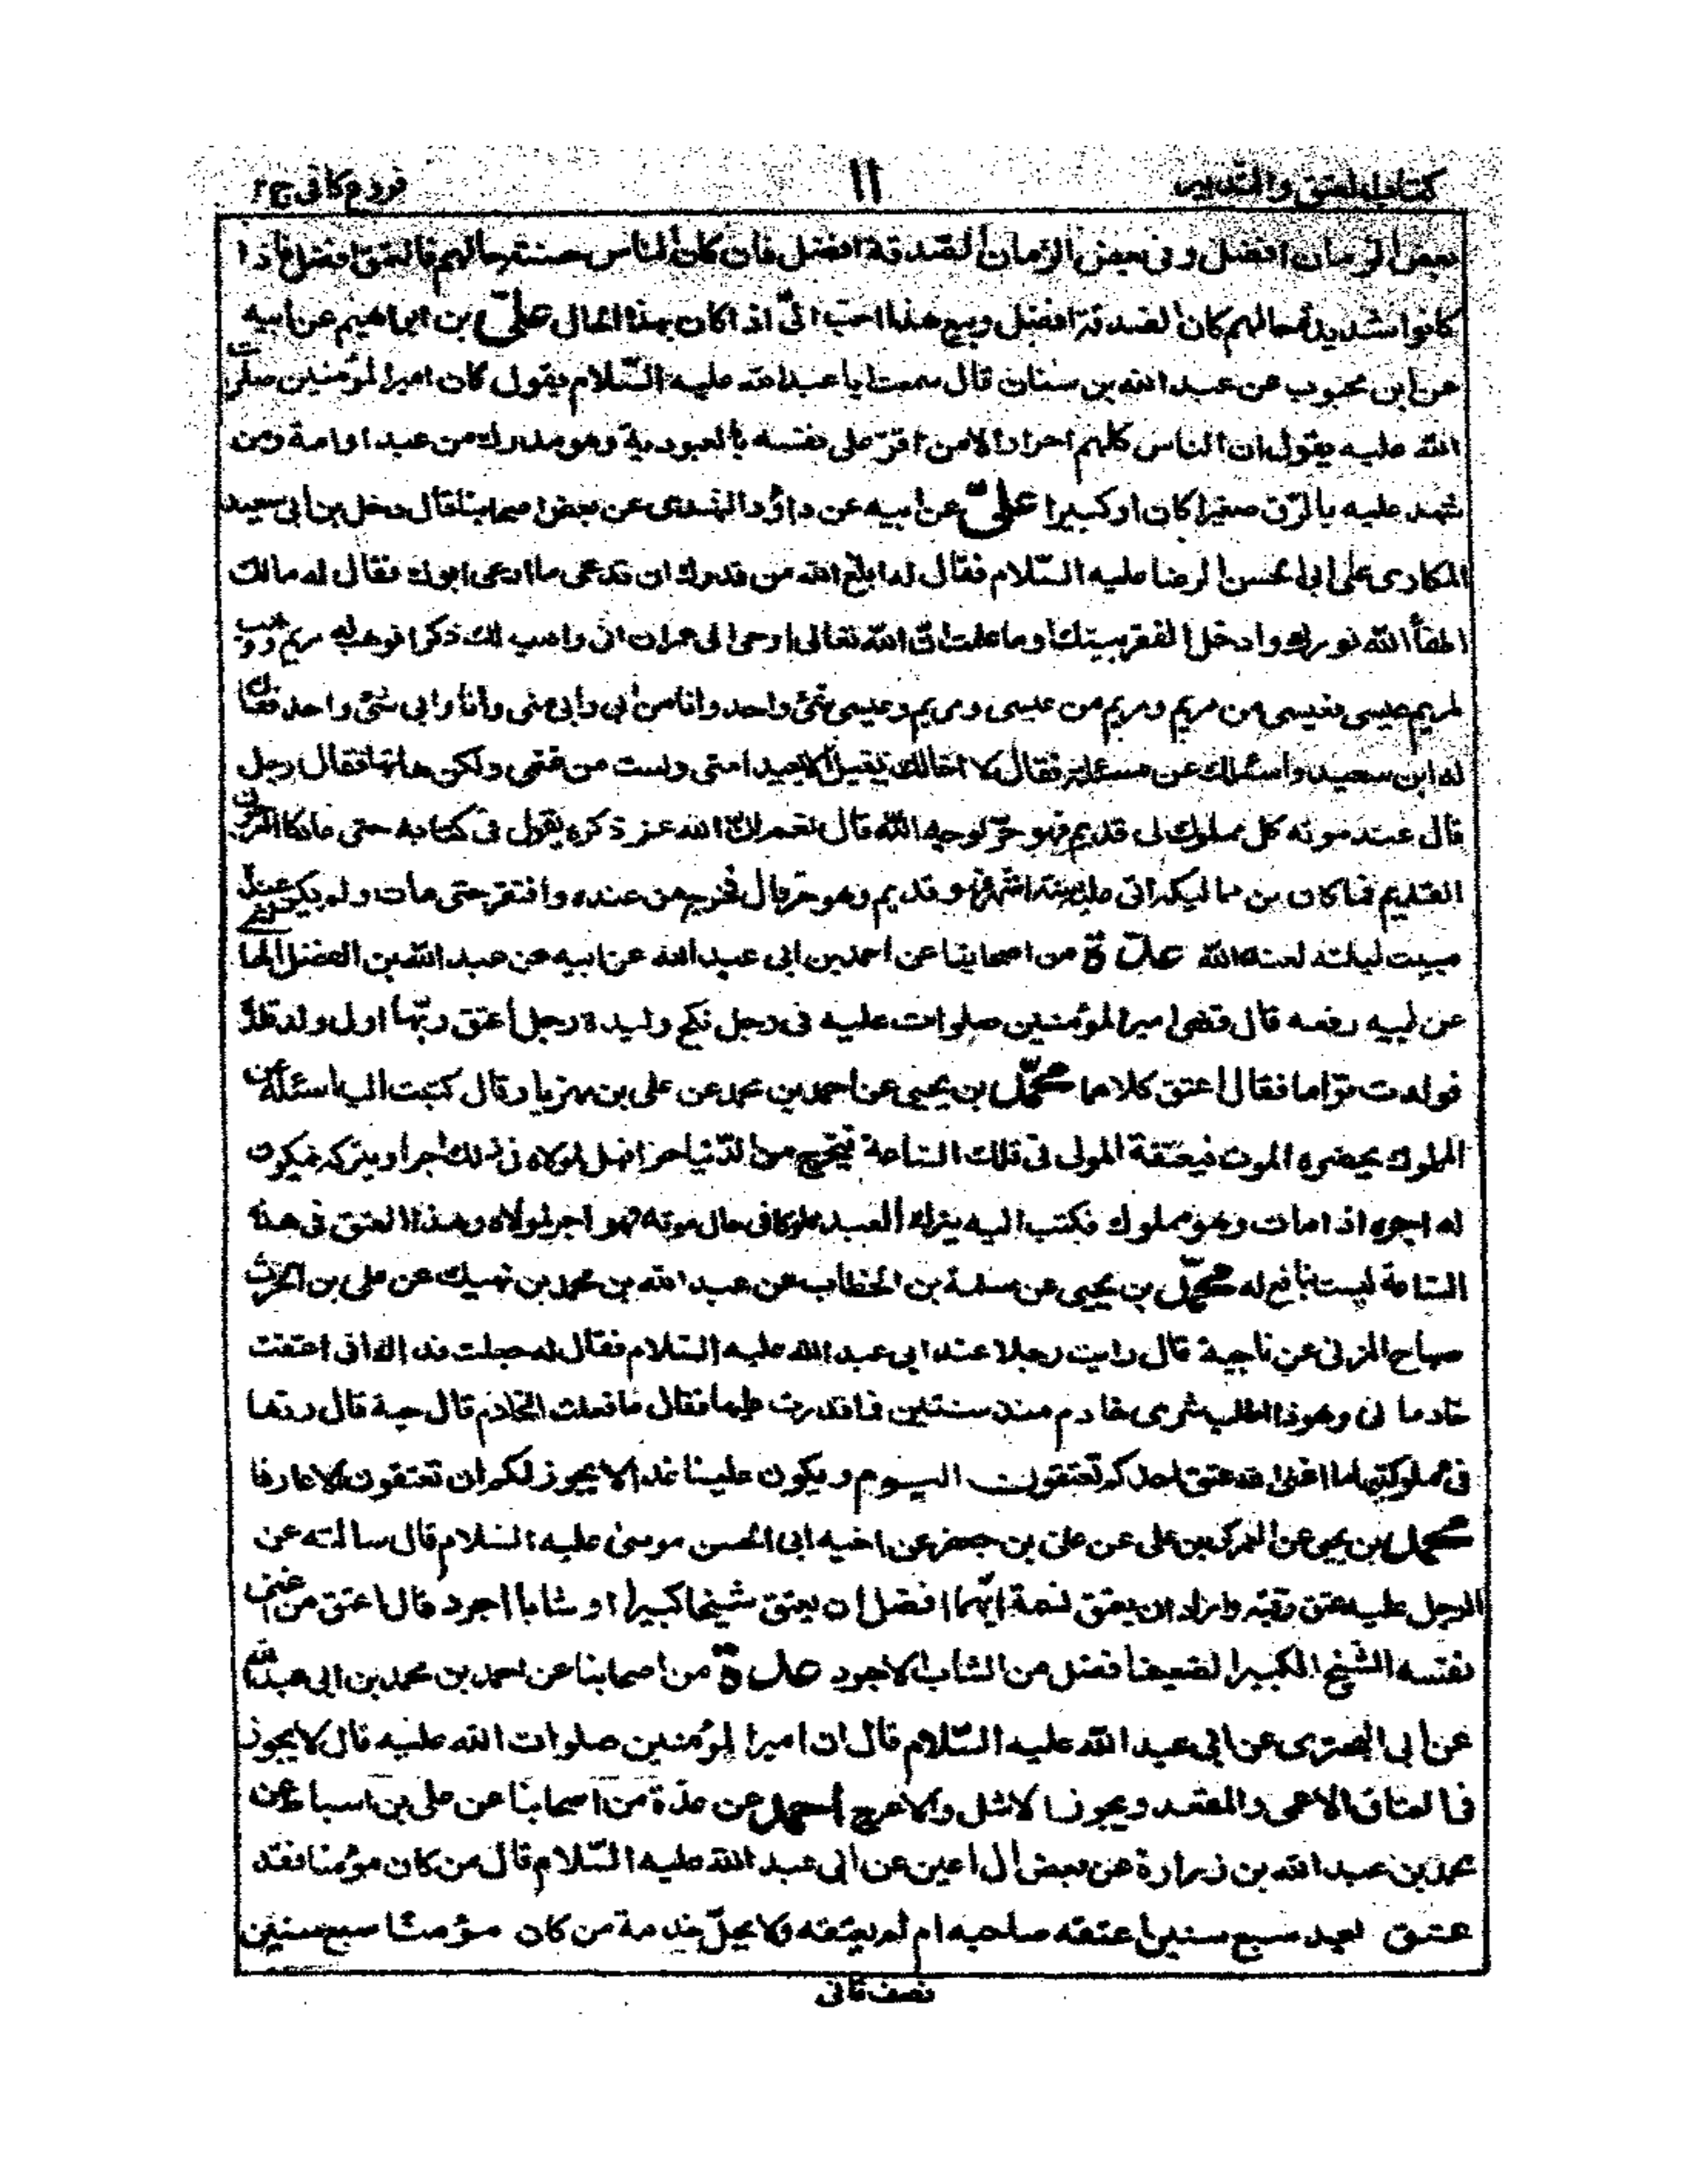 كتاب العتق والتدبير ١١ فروع كافى ج ٢
بعض الزمان افضل وفى بعض الزمان الصدقة افضل فان كان الناس حسنة حالهم فالعتق افضل فاذا
كانوا شديدة حالهم كان الصدقة افضل وبيع هذا احب الىّ اذا كان بهذا الحال علىّ بن ابراهيم عن ابيه
عن ابن محبوب عن عبد الله بن سنان قال سمعت ابا عبد الله عليه السّلام يقول كان امير المؤمنين صلوات
الله عليه يقول ان الناس كلهم احرار الا من اقرّ على نفسه بالعبودية وهو مدرك من عبد او امة ومن
شهد عليه بالرّق صغيرا كان او كبيرا علىّ عن ابيه عن داؤد النهدى عن بعض اصحابنا قال دخل بن ابى سعيد
المكارى على ابى الحسن الرضا عليه السّلام فقال له ابلغ الله من قدرك ان تدعى ما ادعى ابوك فقال له مالك
اطفأ الله نورك وادخل الفقر بيتك اوما علمت انّ الله تعالى اوحى الى عمران انى واهب لك ذكرا فوهب له مريم ووهب
لمريم عيسى فعيسى من مريم ومريم من عيسى ومريم وعيسى شئ واحد وانا من ابى وابى منى وانا وابى شئ واحد فقال
له ابن سعيد واسئلك عن مسئلة فقال لا اخالك تقبل منى ولست من غنمى ولكن هاتها فقال رجل
قال عند موته كل مملوك لى قديم فهو حرّ لوجه الله قال نعم انّ الله عز ذكره يقول فى كتابه حتى عاد كالعرجون
القديم فما كان من مماليكه اتى عليه ستة اشهر فهو قديم وهو حر قال فخرج من عنده وافتقر حتى مات ولم يكن عنده
مبيت ليلته لعنه الله عدّة من اصحابنا عن احمد بن ابى عبد الله عن ابيه عن عبد الله بن الفضل الها
عن ابيه رفعه قال قضى امير المؤمنين صلوات عليه فى رجل نكح وليدة رجل اعتق ربّها اول ولد تلده
فولدت تؤاما فقال اعتق كلاهما محمّد بن يحيى عن احمد بن محمد عن على بن مهزيار قال كتبت اليه اسئله عن
المملوك يحضره الموت فيعتقه المولى فى تلك الساعة فيخرج من الدّنيا حرا فهل لمولاه فى ذلك اجر او يتركه فيكون
له اجره اذا مات وهو مملوك فكتب اليه يترك العبد مملوكا فى حال موته فهو اجر لمولاه وهذا العتق فى هذه
الساعة ليست بنافع له محمّد بن يحيى عن سلمة بن الخطاب عن عبد الله بن محمد بن نهيك عن على بن الحرث
صباح المزنى عن ناجية قال رايت رجلا عند ابى عبد الله عليه السّلام فقال له جعلت فداك انى اعتقت
خادما لى وهوذا اطلب شرى خادم منذ سنتين فما قدرت عليها فقال ما فعلت الخادم قال حية قال ردّها
فى مملوكتها ما اغنى الله عن عتق احدكم تعتقون اليوم ويكون علينا غدا لا يجوز لكم ان تعتقون الا عارفا
محمّد بن يحيى عن العمركى بن على عن على بن جعفر عن اخيه ابى الحسن موسى عليه السلام قال سالته عن
الرجل عليه عتق رقبة واراد ان يعتق نسمة ايّهما افضل ان يعتق شيخا كبيرا او شابا اجرد قال اعتق من اغنى
نفسه الشيخ الكبير الضعيف افضل من الشاب الاجرد عدّة من اصحابنا عن احمد بن محمد بن ابى عبد الله
عن ابى البخترى عن ابى عبد الله عليه السّلام قال ان امير المؤمنين صلوات الله عليه قال لا يجوز
فى العتاق الاعمى والمقعد ويجوز الاشل والاعرج احمد عن عدّة من اصحابنا عن على بن اسباط عن
محمد بن عبد الله بن زرارة عن بعض ال اعين عن ابى عبد الله عليه السّلام قال من كان مؤمنا فقد
عتق بعد سبع سنين اعتقه صاحبه ام لم يعتقه ولا يحلّ خدمة من كان مؤمنا سبع سنين
نصف ثانى